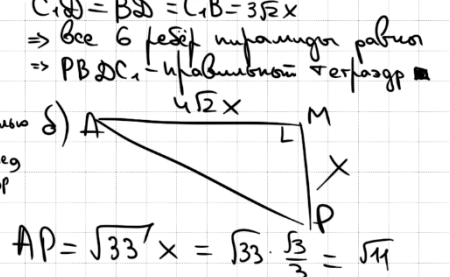 C₁D = BD = C₁B = 3√2 x
⇒ все 6 рёбер пирамиды равны
⇒ PBDC₁ - правильный тетраэдр
4√2 x
б) A M
L
x
P
AP = √33 x = √33 · √3/3 = √11